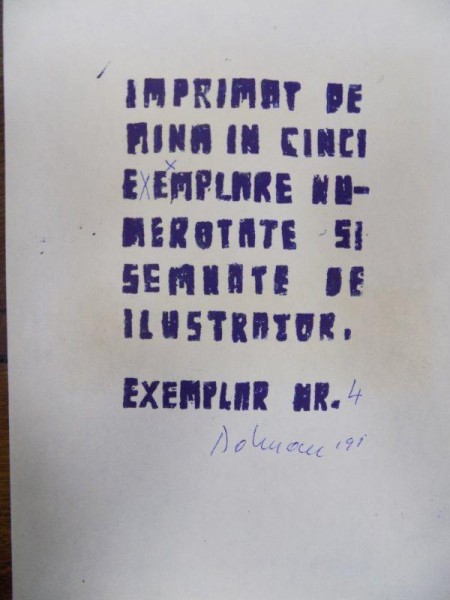 IMPRIMAT DE
MINA IN CINCI
EXEMPLARE NU-
MEROTATE SI
SEMNATE DE
ILUSTRATOR.
EXEMPLAR NR. 4